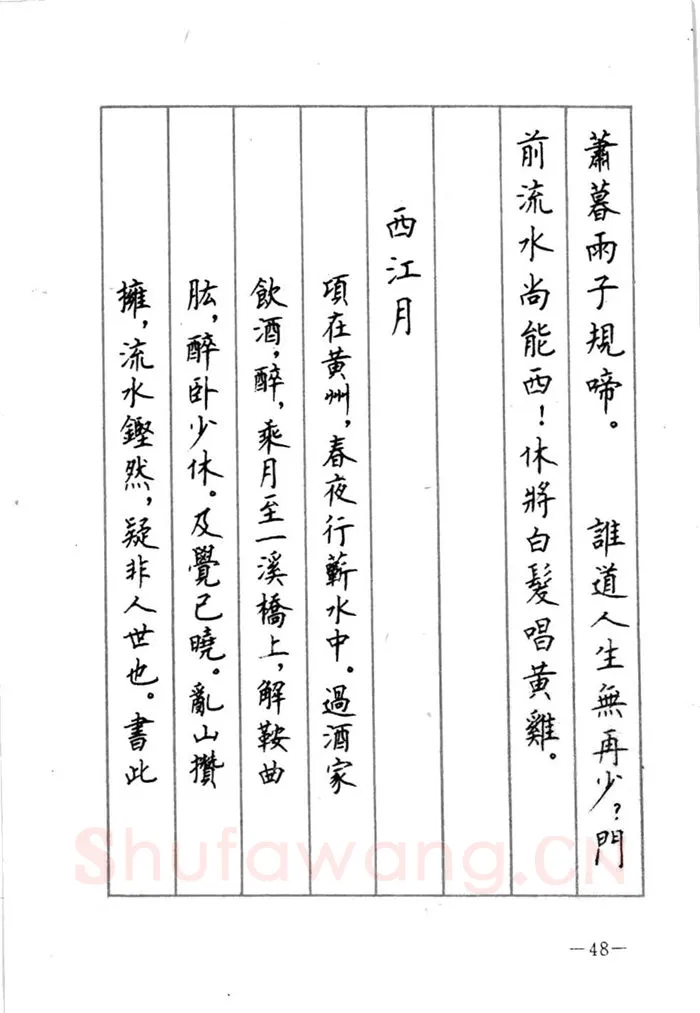 蕭暮雨子規啼。　誰道人生無再少？門
前流水尚能西！休將白髮唱黃雞。
西江月
項在黃州，春夜行蘄水中。過酒家
飲酒，醉，乘月至一溪橋上，解鞍曲
肱，醉卧少休。及覺已曉。亂山攢
擁，流水鏗然，疑非人世也。書此
Shufawang.CN
—48—